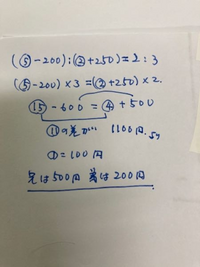 (⑤-200):(②+250)=2:3
(⑤-200)×3=(②+250)×2.
⑮-600=④+500
⑪の差が 1100円.より
①=100円
兄は500円 弟は200円